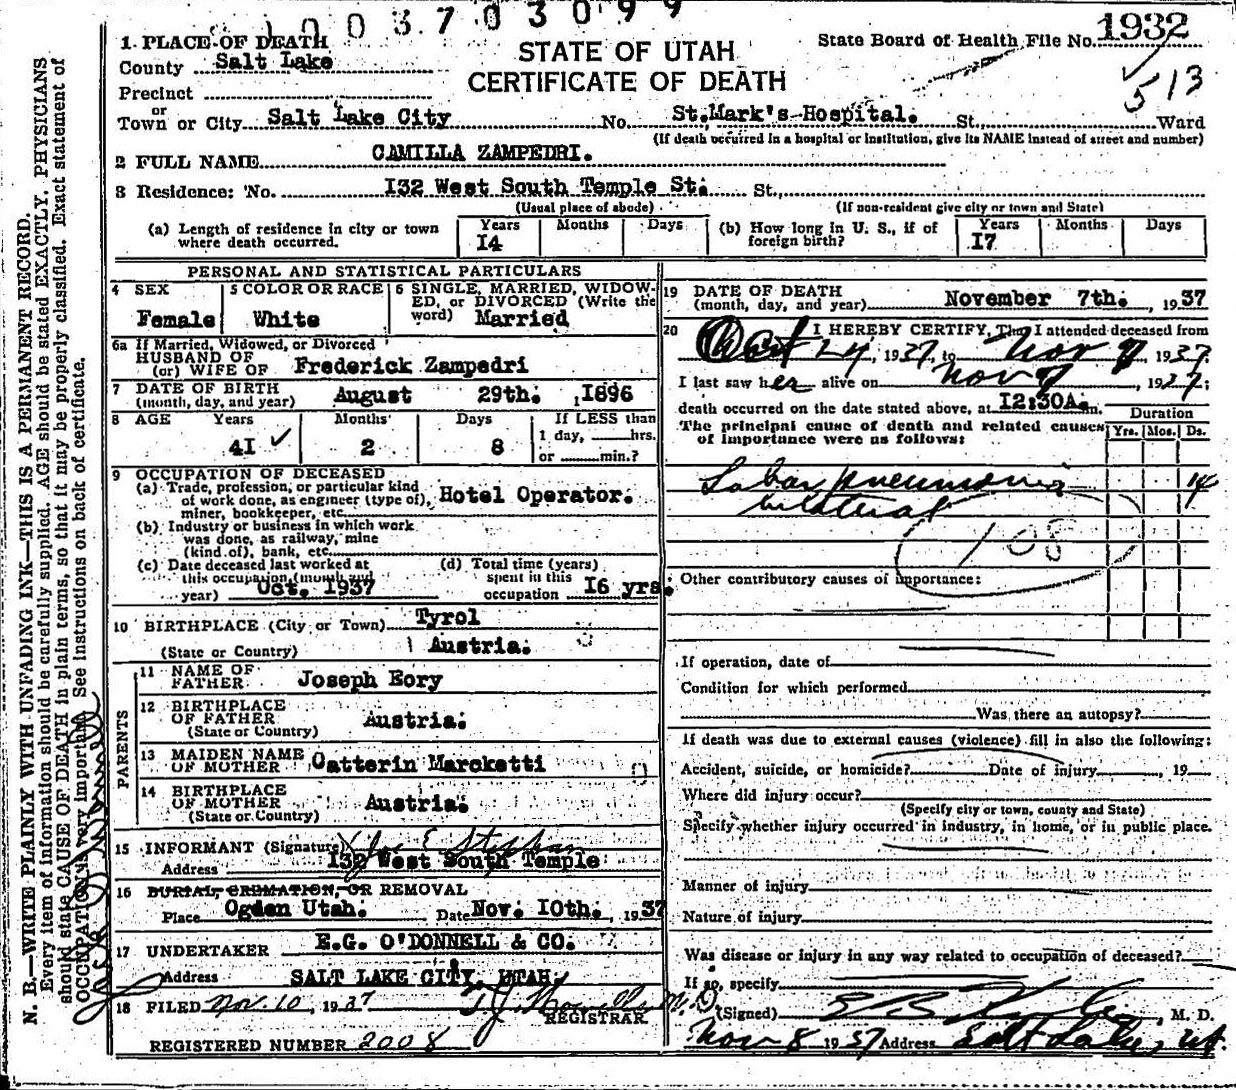 1003703099
1. PLACE OF DEATH
County Salt Lake
Precinct
or
Town or City Salt Lake City No. St.Mark's Hospital. St., Ward
STATE OF UTAH
CERTIFICATE OF DEATH
State Board of Health File No. 1932
513
(If death occurred in a hospital or institution, give its NAME instead of street and number)
2 FULL NAME CAMILLA ZAMPEDRI.
3 Residence: No. I32 West South Temple St. St.,
(Usual place of abode) (If non-resident give city or town and State)
(a) Length of residence in city or town where death occurred. Years I4 Months Days
(b) How long in U. S., if of foreign birth? Years I7 Months Days
PERSONAL AND STATISTICAL PARTICULARS
4 SEX Female
5 COLOR OR RACE White
6 SINGLE, MARRIED, WIDOWED, or DIVORCED (Write the word) Married
6a If Married, Widowed, or Divorced
HUSBAND OF
(or) WIFE OF Frederick Zampedri
7 DATE OF BIRTH
(month, day, and year) August 29th. 1896
8 AGE Years 4I Months 2 Days 8 If LESS than
1 day, hrs.
or min.?
9 OCCUPATION OF DECEASED
(a) Trade, profession, or particular kind
of work done, as engineer (type of),
miner, bookkeeper, etc. Hotel Operator.
(b) Industry or business in which work
was done, as railway, mine
(kind of), bank, etc.
(c) Date deceased last worked at
this occupation (month and
year) Oct. 1937
(d) Total time (years)
spent in this
occupation I6 yrs.
10 BIRTHPLACE (City or Town) Tyrol
(State or Country) Austria.
PARENTS
11 NAME OF
FATHER Joseph Eory
12 BIRTHPLACE
OF FATHER Austria.
(State or Country)
13 MAIDEN NAME
OF MOTHER Catterin Marcketti
14 BIRTHPLACE
OF MOTHER Austria.
(State or Country)
15 INFORMANT (Signature) Joe E
Address I32 West South Temple
16 BURIAL, CREMATION, OR REMOVAL
Place Ogden Utah. Date Nov. IOth. 1937
17 UNDERTAKER E.G. O'DONNELL & CO.
Address SALT LAKE CITY, UTAH
18 FILED Nov. 10, 1937 M.D.
REGISTRAR
REGISTERED NUMBER 2008
19 DATE OF DEATH
(month, day, and year) November 7th. , 1937
20 I HEREBY CERTIFY, That I attended deceased from
Oct 24, 1937, to Nov 7, 1937.
I last saw her alive on Nov 7, 1937;
death occurred on the date stated above, at I2:30A.m.
The principal cause of death and related causes
of importance were as follows:
Duration
Yrs. Mos. Ds.
Lobar pneumonia 14
bilateral
108
Other contributory causes of importance:
If operation, date of
Condition for which performed
Was there an autopsy?
If death was due to external causes (violence) fill in also the following:
Accident, suicide, or homicide? Date of injury , 19
Where did injury occur?
(Specify city or town, county and State)
Specify whether injury occurred in industry, in home, or in public place.
Manner of injury
Nature of injury
Was disease or injury in any way related to occupation of deceased?
If so, specify
(Signed) , M. D.
Nov 8 1937 Address Salt Lake, Ut.
N. B.—WRITE PLAINLY WITH UNFADING INK—THIS IS A PERMANENT RECORD.
Every item of information should be carefully supplied. AGE should be stated EXACTLY. PHYSICIANS
should state CAUSE OF DEATH in plain terms, so that it may be properly classified. Exact statement of
OCCUPATION is very important. See instructions on back of certificate.